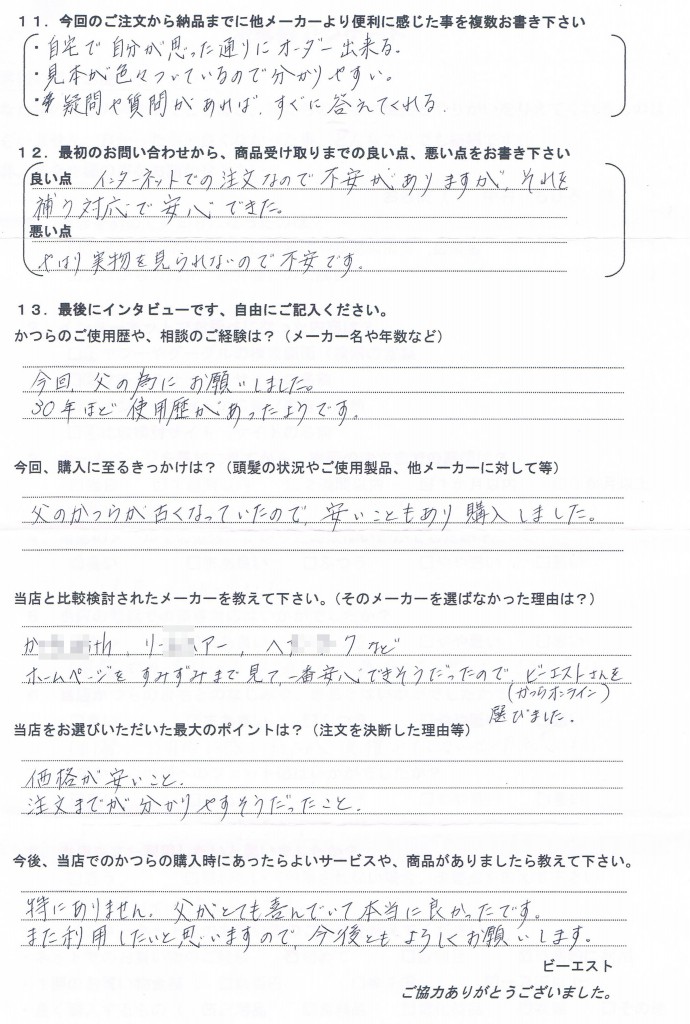 １１．今回のご注文から納品までに他メーカーより便利に感じた事を複数お書き下さい
・自宅で自分が思った通りにオーダー出来る。
・見本が色々ついているので分かりやすい。
・疑問や質問があれば、すぐに答えてくれる。
１２．最初のお問い合わせから、商品受け取りまでの良い点、悪い点をお書き下さい
良い点 インターネットでの注文なので不安がありますが、それを
補う対応で安心できた。
悪い点
やはり実物を見られないので不安です。
１３．最後にインタビューです、自由にご記入ください。
かつらのご使用歴や、相談のご経験は？（メーカー名や年数など）
今回、父の為にお願いしました。
30年ほど使用歴があったようです。
今回、購入に至るきっかけは？（頭髪の状況やご使用製品、他メーカーに対して等）
父のかつらが古くなっていたので、安いこともあり購入しました。
当店と比較検討されたメーカーを教えて下さい。（そのメーカーを選ばなかった理由は？）
か ith、リー アー、ヘ ク など
ホームページをすみずみまで見て一番安心できそうだったので、ビーエストさんを
（かつらオンライン）
選びました。
当店をお選びいただいた最大のポイントは？（注文を決断した理由等）
価格が安いこと。
注文までが分かりやすそうだったこと。
今後、当店でのかつらの購入時にあったらよいサービスや、商品がありましたら教えて下さい。
特にありません。父がとても喜んでいて本当に良かったです。
また利用したいと思いますので、今後ともよろしくお願いします。
ビーエスト
ご協力ありがとうございました。